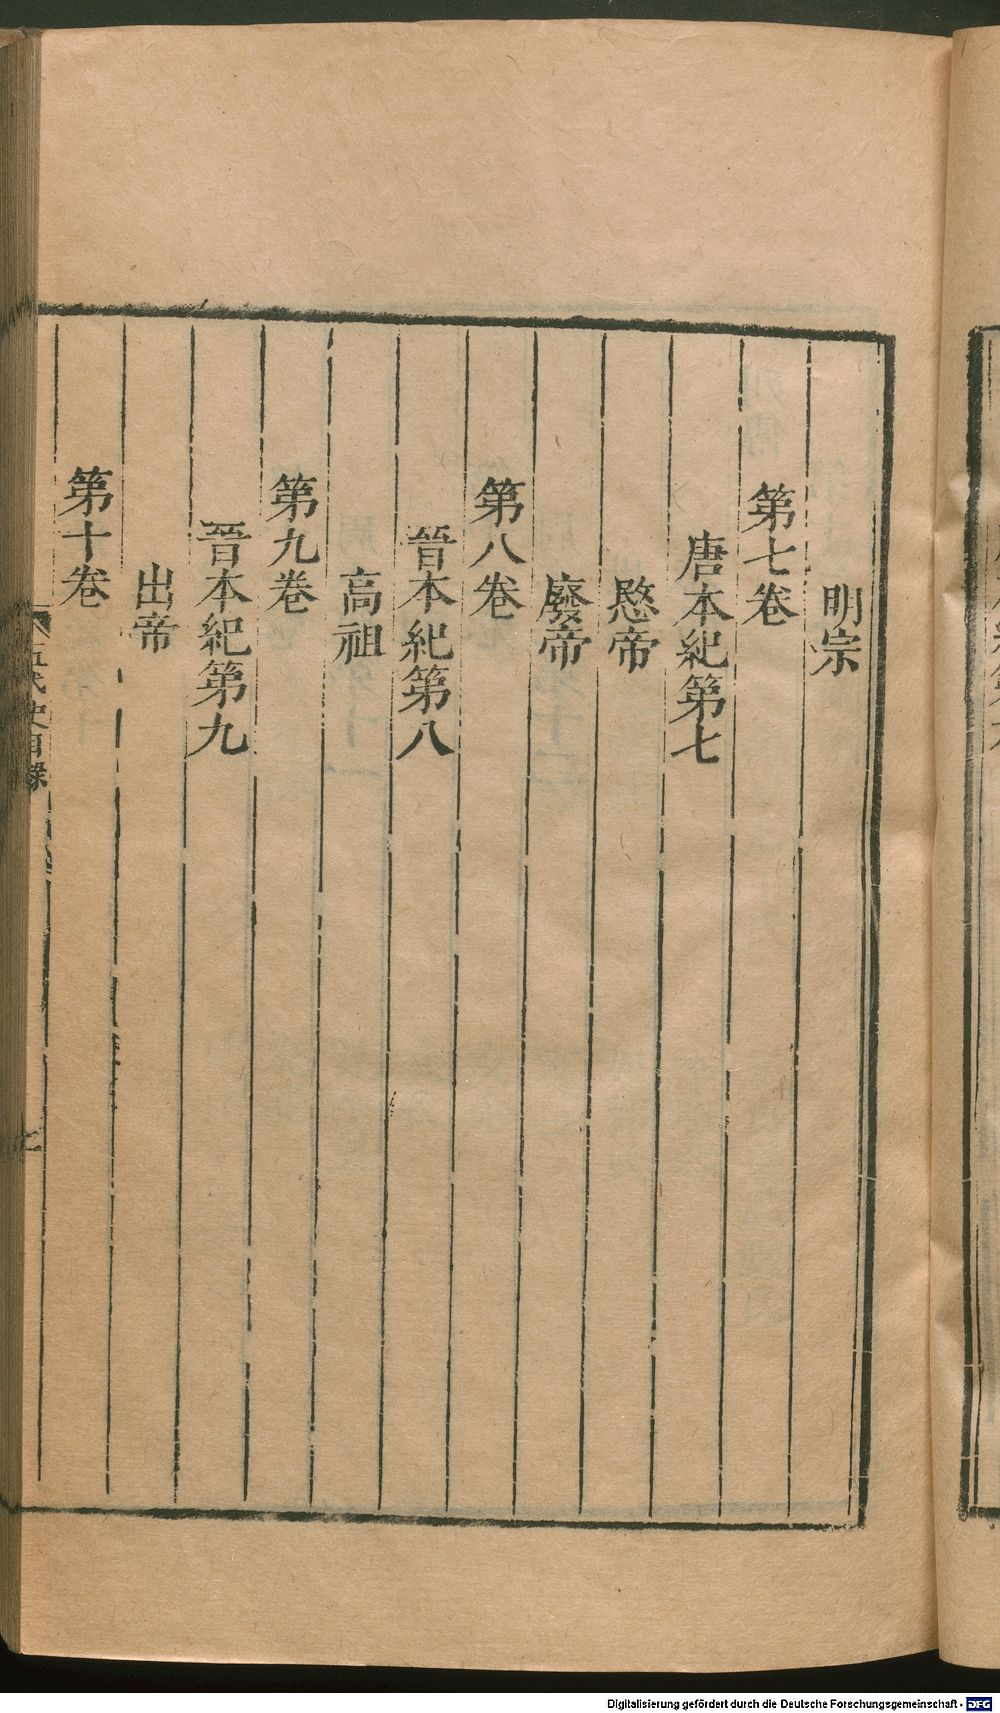 明宗
第七卷
唐本紀第七
愍帝
廢帝
第八卷
晉本紀第八
高祖
第九卷
晉本紀第九
出帝
第十卷
五代史目錄
Digitalisierung gefördert durch die Deutsche Forschungsgemeinschaft - DFG